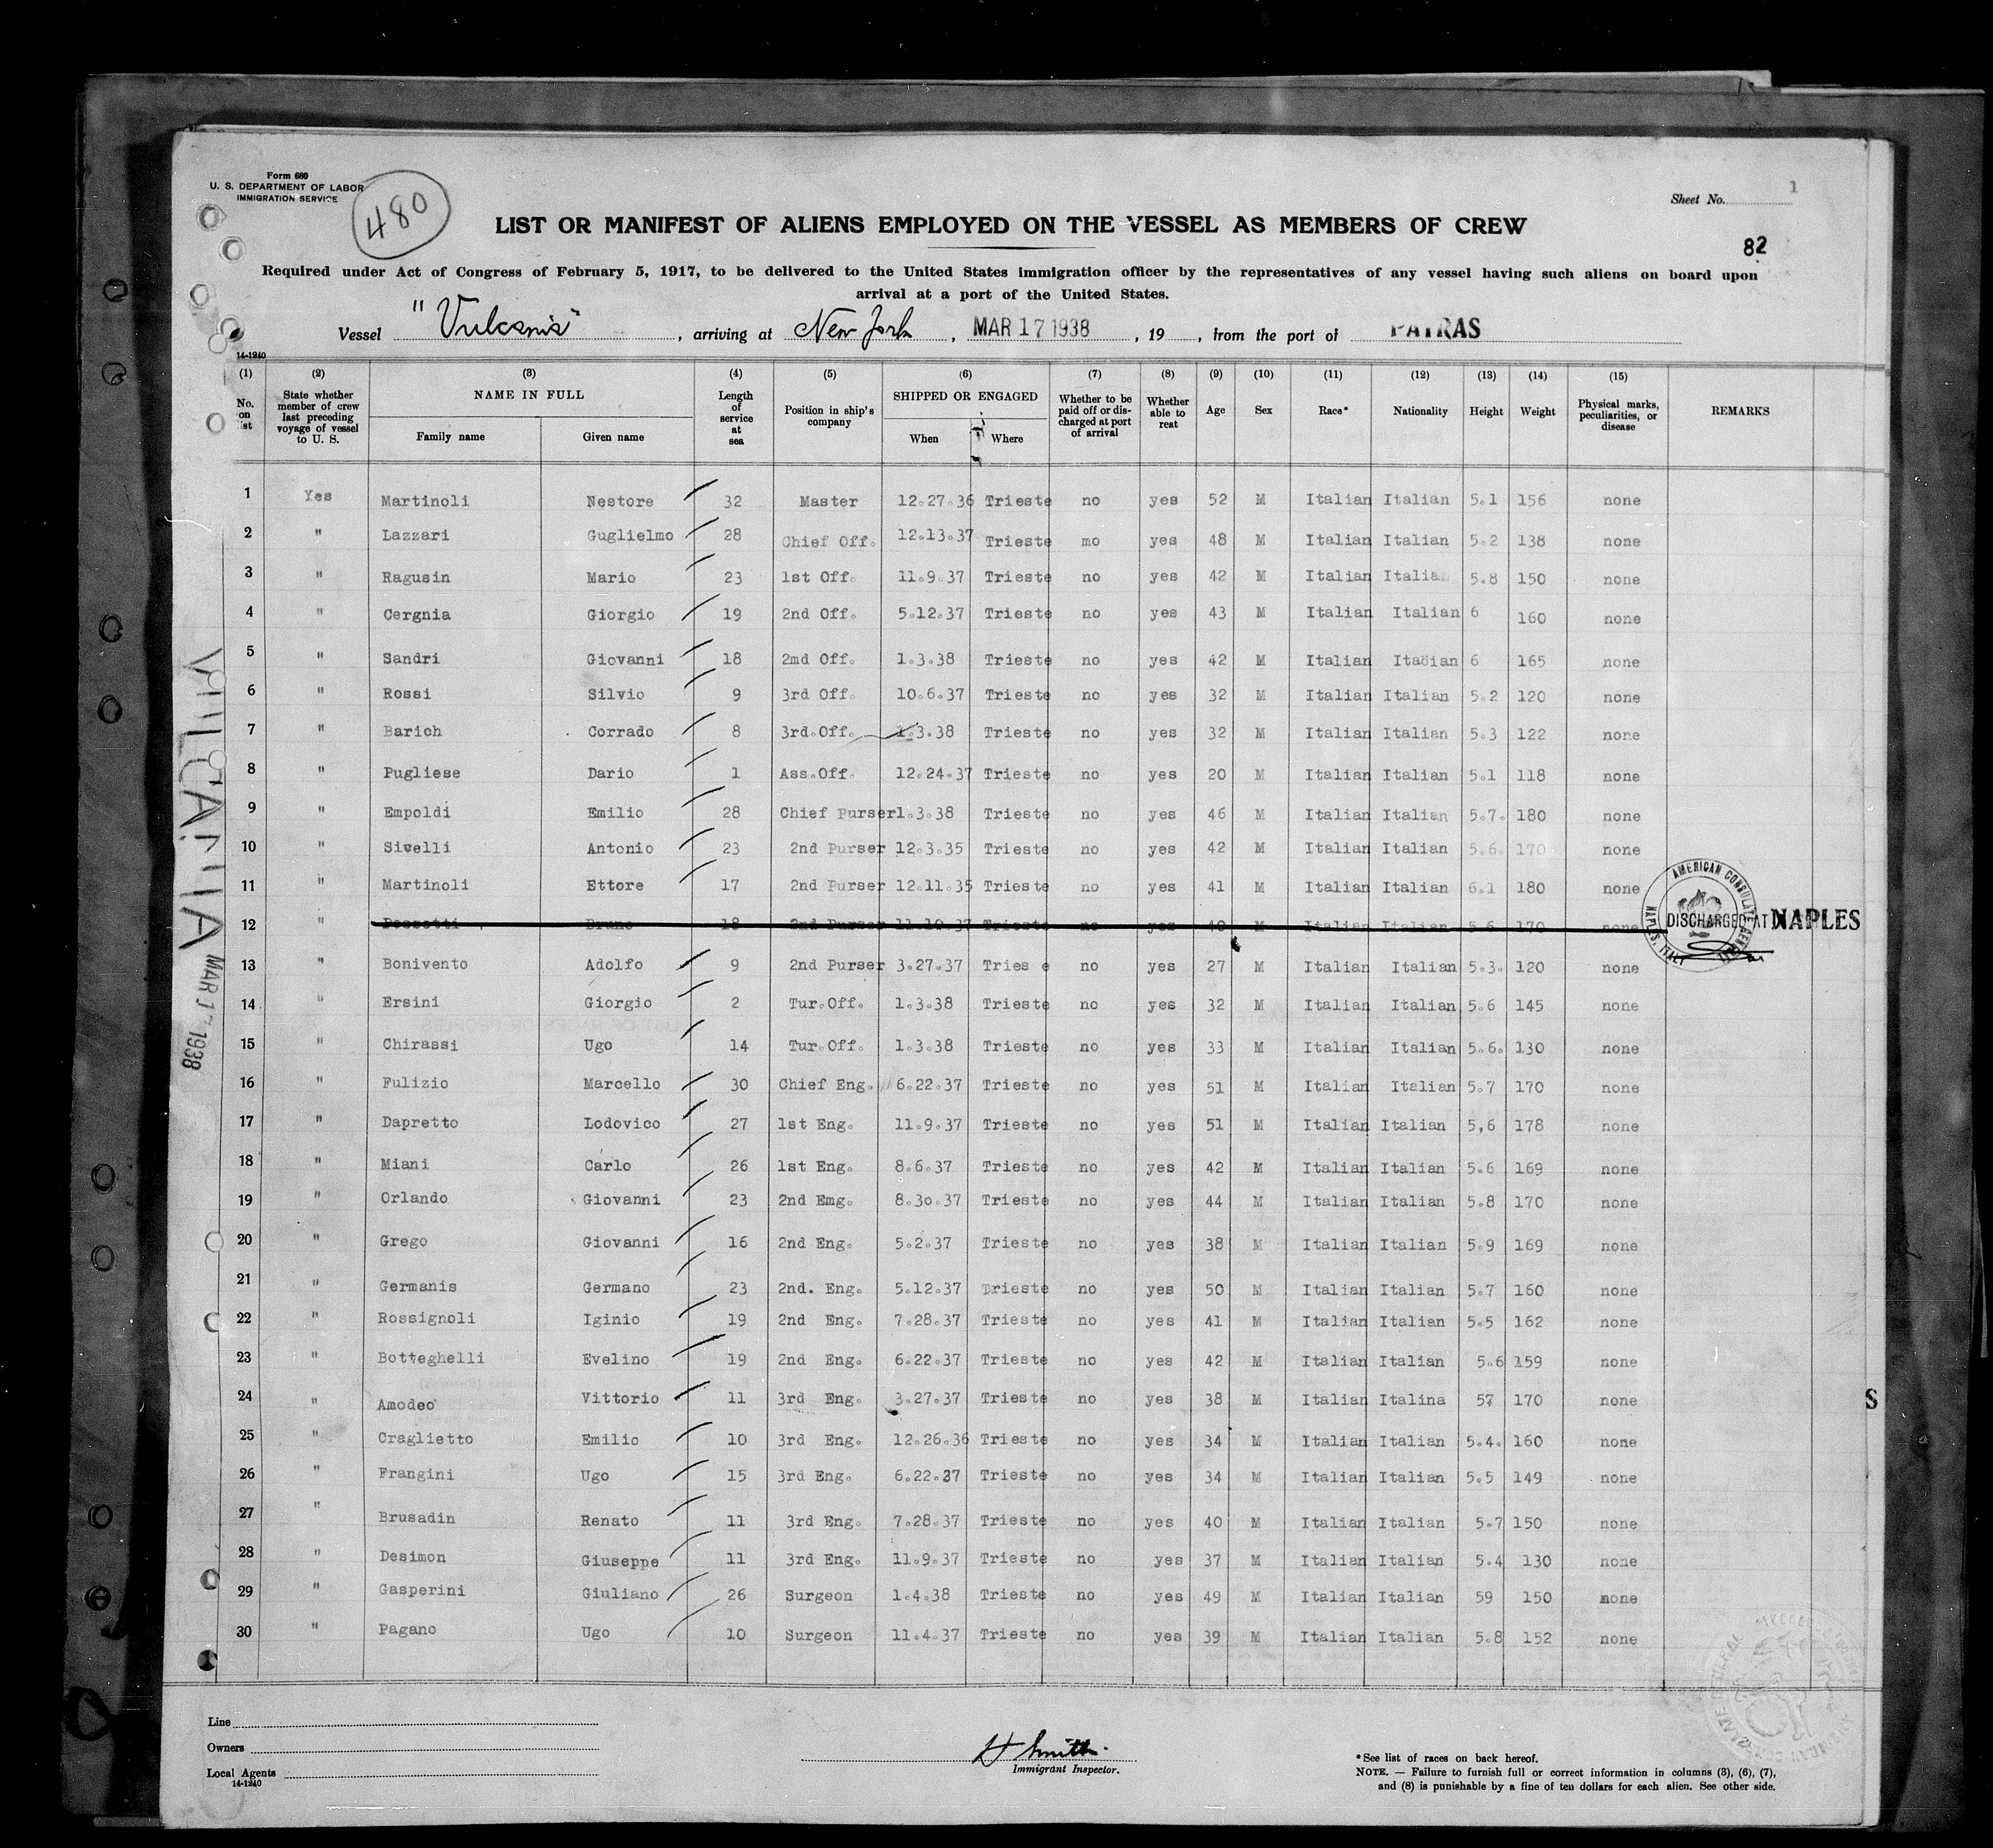 Form 680
U. S. DEPARTMENT OF LABOR
IMMIGRATION SERVICE
480
Sheet No. 1
LIST OR MANIFEST OF ALIENS EMPLOYED ON THE VESSEL AS MEMBERS OF CREW
82
Required under Act of Congress of February 5, 1917, to be delivered to the United States immigration officer by the representatives of any vessel having such aliens on board upon
arrival at a port of the United States.
Vessel "Vulcania", arriving at New York, MAR 17 1938, 19 , from the port of PATRAS
14-1240
(1) (2) (3) (4) (5) (6) (7) (8) (9) (10) (11) (12) (13) (14) (15)
No. on list State whether member of crew last preceding voyage of vessel to U. S. NAME IN FULL Family name Given name Length of service at sea Position in ship's company SHIPPED OR ENGAGED When Where Whether to be paid off or discharged at port of arrival Whether able to reat Age Sex Race* Nationality Height Weight Physical marks, peculiarities, or disease REMARKS
1 Yes Martinoli Nestore 32 Master 12.27.36 Trieste no yes 52 M Italian Italian 5.1 156 none
2 " Lazzari Guglielmo 28 Chief Off. 12.13.37 Trieste mo yes 48 M Italian Italian 5.2 138 none
3 " Ragusin Mario 23 1st Off. 11.9.37 Trieste no yes 42 M Italian Italian 5.8 150 none
4 " Cergnia Giorgio 19 2nd Off. 5.12.37 Trieste no yes 43 M Italian Italian 6 160 none
5 " Sandri Giovanni 18 2md Off. 1.3.38 Trieste no yes 42 M Italian Itadian 6 165 none
6 " Rossi Silvio 9 3rd Off. 10.6.37 Trieste no yes 32 M Italian Italian 5.2 120 none
7 " Barich Corrado 8 3rd.Off. 1.3.38 Trieste no yes 32 M Italian Italian 5.3 122 none
8 " Pugliese Dario 1 Ass.Off. 12.24.37 Trieste no yes 20 M Italian Italian 5.1 118 none
9 " Empoldi Emilio 28 Chief Purser 1.3.38 Trieste no yes 46 M Italian Italian 5.7. 180 none
10 " Sivelli Antonio 23 2nd Purser 12.3.35 Trieste no yes 42 M Italian Italian 5.6. 170 none
11 " Martinoli Ettore 17 2nd Purser 12.11.35 Trieste no yes 41 M Italian Italian 6.1 180 none
12 " Bruno 18 2nd Purser 11.10.37 Trieste no yes 40 M Italian Italian 5.6 170 none DISCHARGED AT NAPLES
AMERICAN CONSULATE GENERAL NAPLES, ITALY
13 " Bonivento Adolfo 9 2nd Purser 3.27.37 Tries e no yes 27 M Italian Italian 5.3. 120 none
14 " Ersini Giorgio 2 Tur.Off. 1.3.38 Trieste no yes 32 M Italian Italian 5.6 145 none
15 " Chirassi Ugo 14 Tur.Off. 1.3.38 Trieste no yes 33 M Italian Italian 5.6. 130 none
16 " Fulizio Marcello 30 Chief Eng. 6.22.37 Trieste no yes 51 M Italian Italian 5.7 170 none
17 " Dapretto Lodovico 27 1st Eng. 11.9.37 Trieste no yes 51 M Italian Italian 5,6 178 none
18 " Miani Carlo 26 1st Eng. 8.6.37 Trieste no yes 42 M Italian Italian 5.6 169 none
19 " Orlando Giovanni 23 2nd Emg. 8.30.37 Trieste no yes 44 M Italian Italian 5.8 170 none
20 " Grego Giovanni 16 2nd Eng. 5.2.37 Trieste no yes 38 M Italian Italian 5.9 169 none
21 " Germanis Germano 23 2nd. Eng. 5.12.37 Trieste no yes 50 M Italian Italian 5.7 160 none
22 " Rossignoli Iginio 19 2nd Eng. 7.28.37 Trieste no yes 41 M Italian Italian 5.5 162 none
23 " Botteghelli Evelino 19 2nd Eng. 6.22.37 Trieste no yes 42 M Italian Italian 5.6 159 none
24 " Amodeo Vittorio 11 3rd Eng. 3.27.37 Trieste no yes 38 M Italian Italina 57 170 none
S
25 " Craglietto Emilio 10 3rd Eng. 12.26.36 Trieste no yes 34 M Italian Italian 5.4. 160 none
26 " Frangini Ugo 15 3rd Eng. 6.22.37 Trieste no yes 34 M Italian Italian 5.5 149 none
27 " Brusadin Renato 11 3rd Eng. 7.28.37 Trieste no yes 40 M Italian Italian 5.7 150 none
28 " Desimon Giuseppe 11 3rd Eng. 11.9.37 Trieste no yes 37 M Italian Italian 5.4 130 none
29 " Gasperini Giuliano 26 Surgeon 1.4.38 Trieste no yes 49 M Italian Italian 59 150 none
30 " Pagano Ugo 10 Surgeon 11.4.37 Trieste no yes 39 M Italian Italian 5.8 152 none
VULCANIA MAR 17 1938
Line
Owners
Local Agents
14-1240
H Smith
Immigrant Inspector.
*See list of races on back hereof.
NOTE. — Failure to furnish full or correct information in columns (3), (6), (7),
and (8) is punishable by a fine of ten dollars for each alien. See other side.